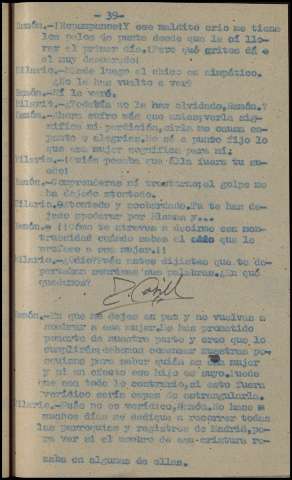 - 39 -
Ramón.-¡Repampanos!Y ese maldito crio me tiene
los pelos de punta desde que le oí llo-
rar el primer día.¡Pero qué gritos dá e
el muy descarado!
Hilario.-Desde luego el chico es simpático.
¿No le has vuelto a ver?
Ramón.-Ni lo veré.
Hilario.-¿Todavía no la has olvidado,Ramón.?
Ramón.-Ahora sufro más que antes;verla sig-
nifica mi perdición,oirla me causa es-
panto y alegrías.No sé a punto fijo lo
que esa mujer significa para mi!
Hilario.-¡Quién pensaba que ella fuera tu su-
Ramón.-Comprenderas mi trastorno;el golpe me
ha dejado atontado.
Hilario.-Atontado y acobardado.Ya te has de-
jado apoderar por Blanca y...
Ramón.-¡Cómo te atreves a decirme con
cuando sabes el odio que le
a esa mujer.!!
Hilario.-¿Odio?Pués antes dijistes que te
des-
pertaban sus palabras.¿En qué
quedamos?
Ramón.-En que me dejes en paz y no vuelvas a
nombrar a esa mujer.Me has prometido
ponerte de nuestra parte y creo que lo
cumplirás;debemos comenzar nuestras pes-
quisas para saber quién es esa mujer
y si en efecto ese hijo es suyo.Puede
que sea todo lo contrario,si esto fuera
verídico sería capaz de estrangularla.
Hilario.-Pués no es verídico,Ramón.No hace
muchos días me dedique a recorrer todas
las parroquias y registros de Madrid,pa-
ra ver si el nombre de esa criatura re-
zaba en algunas de ellas.